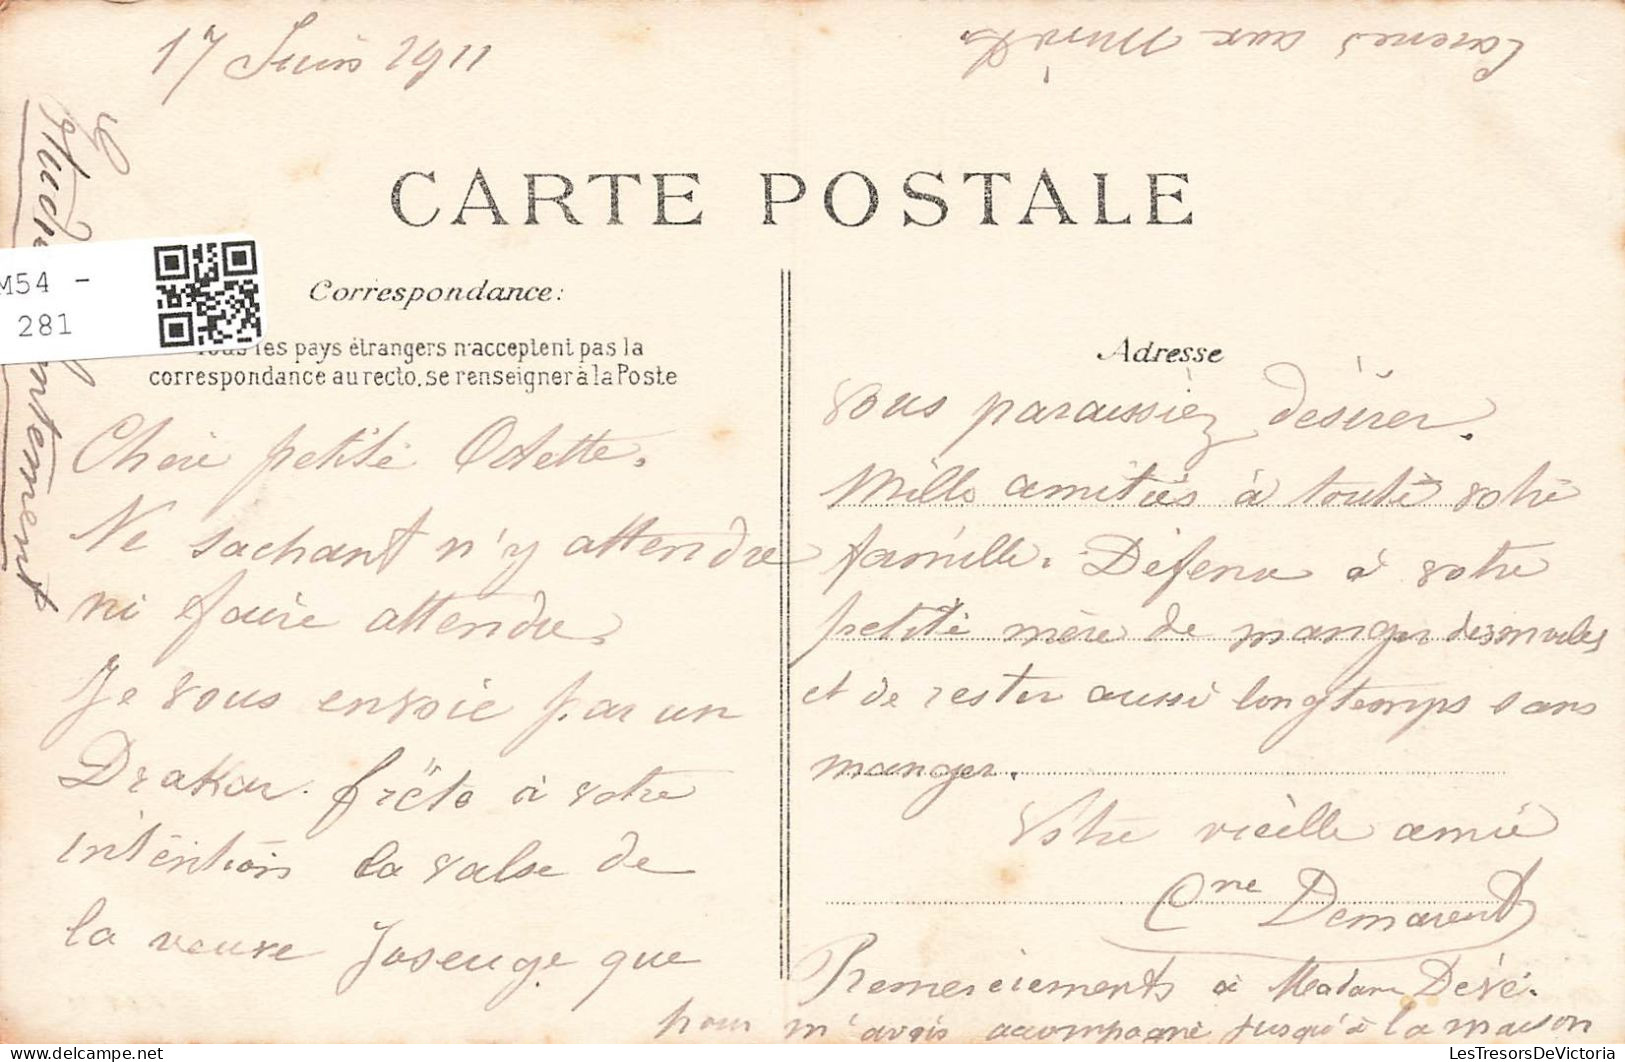 17 Juin 1911
CARTE POSTALE
Correspondance:
Tous les pays étrangers n'acceptent pas la
correspondance au recto, se renseigner à la Poste
Chère petite Odette.
Ne sachant n'y attendre
ni faire attendre,
Je vous envoie par un
Drakar frêté à votre
intention la valse de
la veuve Joseuge que
Adresse
vous paraissiez désirer.
Mille amitiés à toute votre
famille. Défense à votre
petite mère de manger des moules
et de rester aussi longtemps sans
manger.
Votre vieille amie
Cne Demarent
Remerciements à Madame Dévé.
pour m'avoir accompagné jusqu'à la maison
aux
M54 -
281
LesTresorsDeVictoria.com